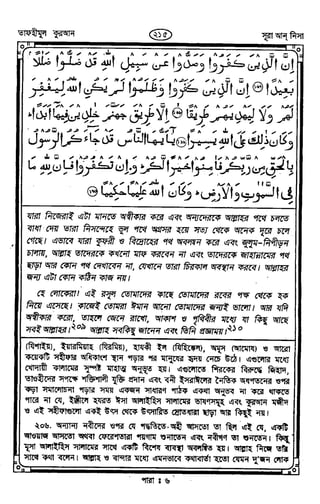 তাফহীমুল কুরআন
২১৫
সূরা আন্ নিসা
إِنَّ الَّذِينَ كَفَرُوا وَصَدُّوا عَنْ سَبِيلِ اللَّهِ قَدْ ضَلُّوا ضَلَٰلًا
بَعِيدًا ﴿١٦٧﴾ إِنَّ الَّذِينَ كَفَرُوا وَظَلَمُوا لَمْ يَكُنِ اللَّهُ لِيَغْفِرَ
لَهُمْ وَلَا لِيَهْدِيَهُمْ طَرِيقًا ﴿١٦٨﴾ إِلَّا طَرِيقَ جَهَنَّمَ خَٰلِدِينَ فِيهَا أَبَدًا
وَكَانَ ذَٰلِكَ عَلَى اللَّهِ يَسِيرًا ﴿١٦٩﴾ يَا أَيُّهَا النَّاسُ قَدْ جَاءَكُمُ الرَّسُولُ
بِالْحَقِّ مِنْ رَبِّكُمْ فَآمِنُوا خَيْرًا لَكُمْ وَإِنْ تَكْفُرُوا فَإِنَّ لِلَّهِ مَا
فِي السَّمَٰوَٰتِ وَالْأَرْضِ وَكَانَ اللَّهُ عَلِيمًا حَكِيمًا ﴿١٧٠﴾
যারা নিজেরাই এটা মানতে অস্বীকার করে এবং অন্যদেরকে আল্লাহর পথে চলতে
বাধা দেয় তারা নিসন্দেহে ভুল পথে অগ্রসর হয়ে সত্য থেকে অনেক দূরে চলে
গেছে। এভাবে যারা কুফরী ও বিদ্রোহের পথ অবলম্বন করে এবং জুলুম-নিপীড়ন
চালায়, আল্লাহ তাদেরকে কখনো মাফ করবেন না এবং তাদেরকে জাহান্নামের পথ
ছাড়া আর কোন পথ দেখাবেন না, যেখানে তারা চিরকাল অবস্থান করবে। আল্লাহর
জন্য এটা কোন কঠিন কাজ নয়।
হে লোকেরা! এই রসূল তোমাদের কাছে তোমাদের রবের পক্ষ থেকে হক
নিয়ে এসেছে। কাজেই তোমরা ঈমান আনো তোমাদের জন্যই ভালো। আর যদি
অস্বীকার করো, তাহলে জেনে রাখো, আকাশ ও পৃথিবীর মধ্যে যা কিছু আছে
সবই আল্লাহর।২০৯ আল্লাহ সবকিছু জানেন এবং তিনি প্রজ্ঞাময়।২১০
(যিশাইয়), ইয়ারমিয়াহ (যিরমিয়), হাযকী ইল (যিহিষ্কেল), আমূস (আমোষ) ও আরো
কয়েকটি সহীফার অধিকাংশ স্থান পড়ার পর মানুষের হৃদয় নেচে উঠে। এগুলোর মধ্যে
খোদায়ী কালামের সুস্পষ্ট মাহাত্ম অনুভূত হয়। এগুলোতে শিরকের বিরুদ্ধে জিহাদ,
তাওহীদের সপক্ষে শক্তিশালী যুক্তি প্রদান এবং বনী ইসরাঈলের নৈতিক অধপতনের ওপর
কড়া সমালোচনা পড়ার সময় একজন সাধারণ পাঠক একথা অনুভব না করে থাকতে
পারে না যে, ইঞ্জীলে হযরত ঈসা আলাইহিস সালামের ভাষণসমূহ এবং কুরআন মজীদ
ও এই সহীফাগুলো একই উৎস থেকে উৎসারিত স্রোতধারা ছাড়া আর কিছুই নয়।
২০৬. অন্যান্য নবীদের ওপর যে পদ্ধতিতে-অহী আসতো তা ছিল এই যে, একটি
আওয়াজ আসতো অথবা ফেরেশতারা পয়গাম শুনাতেন এবং নবীগণ তা শুনতেন। কিন্তু
মূসা আলাইহিস সালামের সাথে একটি বিশেষ ব্যবস্থা অবলম্বিত হয়। আল্লাহ নিজে তাঁর
সাথে কথা বলেন। আল্লাহ ও বান্দার মধ্যে এমনভাবে কথাবার্তা হতো যেমন দু'জন লোক
পারা ঃ ৬